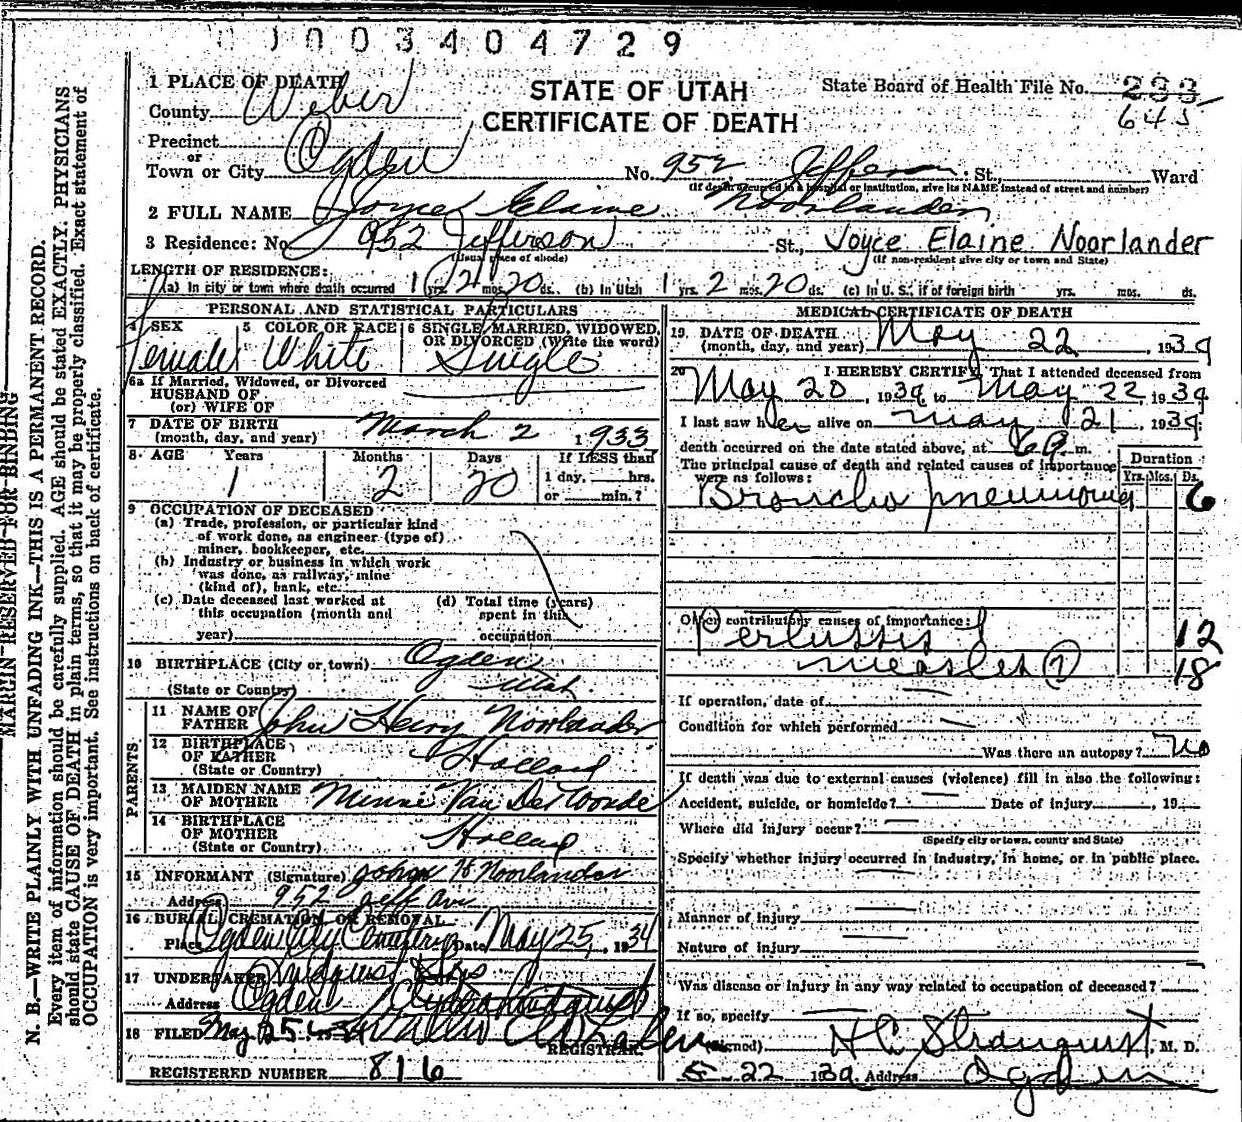 1003404729
1 PLACE OF DEATH
STATE OF UTAH
CERTIFICATE OF DEATH
State Board of Health File No. 233
645
County Weber
Precinct
or
Town or City Ogden No. 952 Jefferson St., Ward
(If death occurred in a hospital or institution, give its NAME instead of street and number)
2 FULL NAME Joyce Elaine Noorlander
3 Residence: No. 952 Jefferson St., Joyce Elaine Noorlander
(Usual place of abode) (If non-resident give city or town and State)
LENGTH OF RESIDENCE:
(a) In city or town where death occurred 1 yrs. 2 mos. 20 ds. (b) In Utah 1 yrs. 2 mos. 20 ds. (c) In U. S., if of foreign birth yrs. mos. ds.
PERSONAL AND STATISTICAL PARTICULARS
4 SEX 5 COLOR OR RACE 6 SINGLE, MARRIED, WIDOWED, OR DIVORCED (Write the word)
Female White Single
6a If Married, Widowed, or Divorced
HUSBAND OF
(or) WIFE OF
7 DATE OF BIRTH
(month, day, and year) March 2 1933
8 AGE Years Months Days If LESS than
1 2 20 1 day, hrs.
or min.?
9 OCCUPATION OF DECEASED
(a) Trade, profession, or particular kind
of work done, as engineer (type of)
miner, bookkeeper, etc.
(b) Industry or business in which work
was done, as railway, mine
(kind of), bank, etc.
(c) Date deceased last worked at (d) Total time (years)
this occupation (month and spent in this
year) occupation
10 BIRTHPLACE (City or town) Ogden
(State or Country) Utah
PARENTS
11 NAME OF
FATHER John Henry Noorlander
12 BIRTHPLACE
OF FATHER Holland
(State or Country)
13 MAIDEN NAME
OF MOTHER Minnie Van De Woude
14 BIRTHPLACE
OF MOTHER Holland
(State or Country)
15 INFORMANT (Signature) Johan H Noorlander
Address 952 Jeff Ave
16 BURIAL, CREMATION OR REMOVAL
Place Ogden City Cemetery Date May 25, 1934
17 UNDERTAKER Lindquist & Sons
Address Ogden Clyde Lindquist
18 FILED May 25 1934
REGISTRAR
REGISTERED NUMBER 816
MEDICAL CERTIFICATE OF DEATH
19 DATE OF DEATH
(month, day, and year) May 22, 1934
20 I HEREBY CERTIFY, That I attended deceased from
May 20, 1934 to May 22 1934
I last saw her alive on May 21, 1934;
death occurred on the date stated above, at 6 a m.
The principal cause of death and related causes of importance
were as follows: Duration
Yrs. Mos. Ds.
Broncho pneumonia 6
Other contributory causes of importance:
Pertussis & 12
measles (?) 18
If operation, date of
Condition for which performed
Was there an autopsy? no
If death was due to external causes (violence) fill in also the following:
Accident, suicide, or homicide? Date of injury , 19
Where did injury occur?
(Specify city or town, county and State)
Specify whether injury occurred in industry, in home, or in public place.
Manner of injury
Nature of injury
Was disease or injury in any way related to occupation of deceased?
If so, specify
(Signed) H C Stranquist, M. D.
5-22 1934 Address Ogden
MARGIN RESERVED FOR BINDING
N. B.—WRITE PLAINLY WITH UNFADING INK—THIS IS A PERMANENT RECORD.
Every item of information should be carefully supplied. AGE should be stated EXACTLY. PHYSICIANS
should state CAUSE OF DEATH in plain terms, so that it may be properly classified. Exact statement of
OCCUPATION is very important. See instructions on back of certificate.